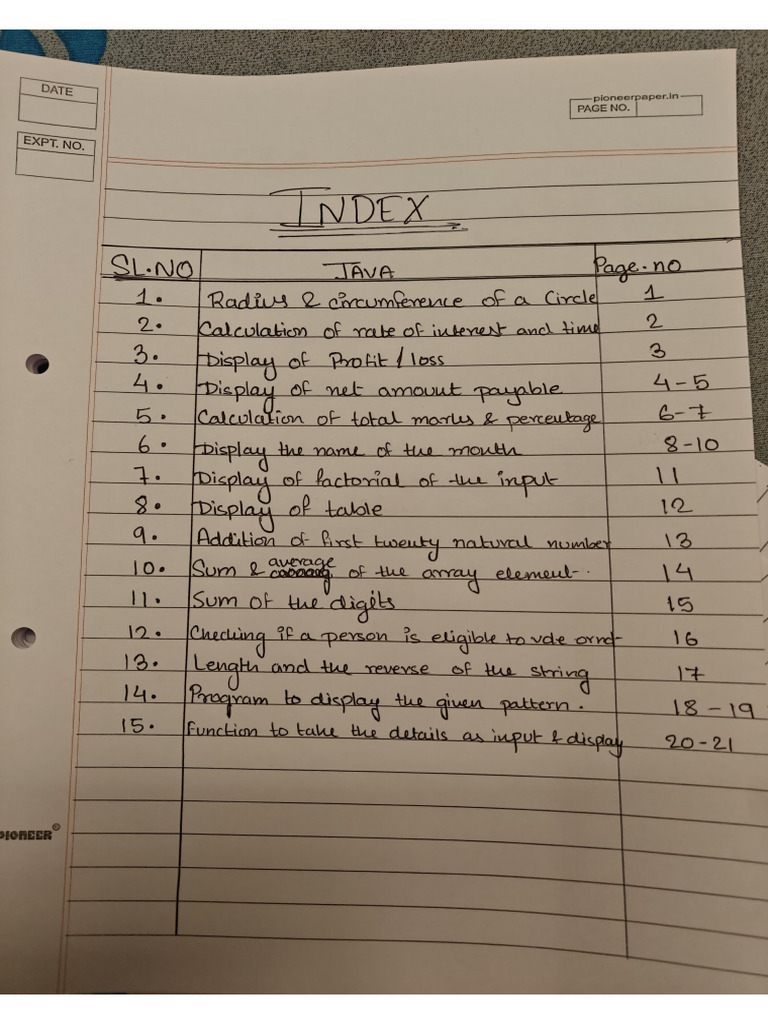 DATE
pioneerpaper.in
PAGE NO.
EXPT. NO.
INDEX
SL.NO JAVA Page.no
1. Radius & circumference of a Circle 1
2. Calculation of rate of interest and time 2
3. Display of Profit/loss 3
4. Display of net amount payable 4-5
5. Calculation of total marks & percentage 6-7
6. Display the name of the month 8-10
7. Display of factorial of the input 11
8. Display of table 12
9. Addition of first twenty natural number 13
10. Sum & average of the array element. 14
11. Sum of the digits 15
12. Checking if a person is eligible to vote or not 16
13. Length and the reverse of the string 17
14. Program to display the given pattern. 18-19
15. Function to take the details as input & display 20-21
PIONEER®